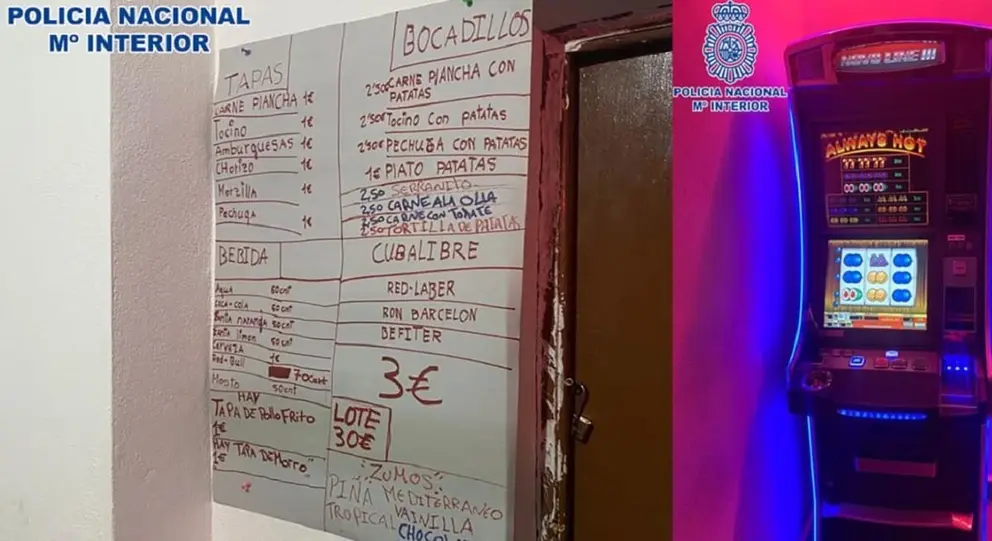 POLICIA NACIONAL
Mº INTERIOR
TAPAS
CARNE PlANCHA 1€
Tocino 1€
Amburguesas 1€
CHorizo 1€
Morzilla 1€
Pechuga 1€
BEBIDA
Agua 60cnt
coca-cola 60cnt
Fanta naranja 50cnt
Fanta limon 50cnt
Cerveza 1€
Red-Bull 70cnt
Mosto 50cnt
HAY
TAPA DE Pollo Frito
1€
HAY TAPA DE Morro
1€
BOCADILLOS
2'50€ CARNE PlANCHA CON
PATATAS
2'50€ Tocino Con patatas
2'50€ PECHUGA CON PATATAS
1€ PlATO PATATAS
2,50 SERRANITO
2,50 CARNE A LA OLLA
2,50 CARNE CON TOMATE
2,50 TORTILLA DE PATATAS
CUBALIBRE
RED-LABER
RON BARCELON
DEFITER
3€
LOTE
30€
¡ZUMOS!
PIÑA MEDITERRANEO
TROPICAL VAINILLA
POLICIA NACIONAL
Mº INTERIOR
NOVO LINE III
ALWAYS HOT